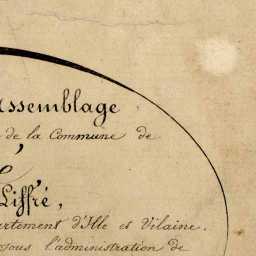 Assemblage
de la Commune de
Liffré,
artement d'Ille et Vilaine.
sous l'administration de